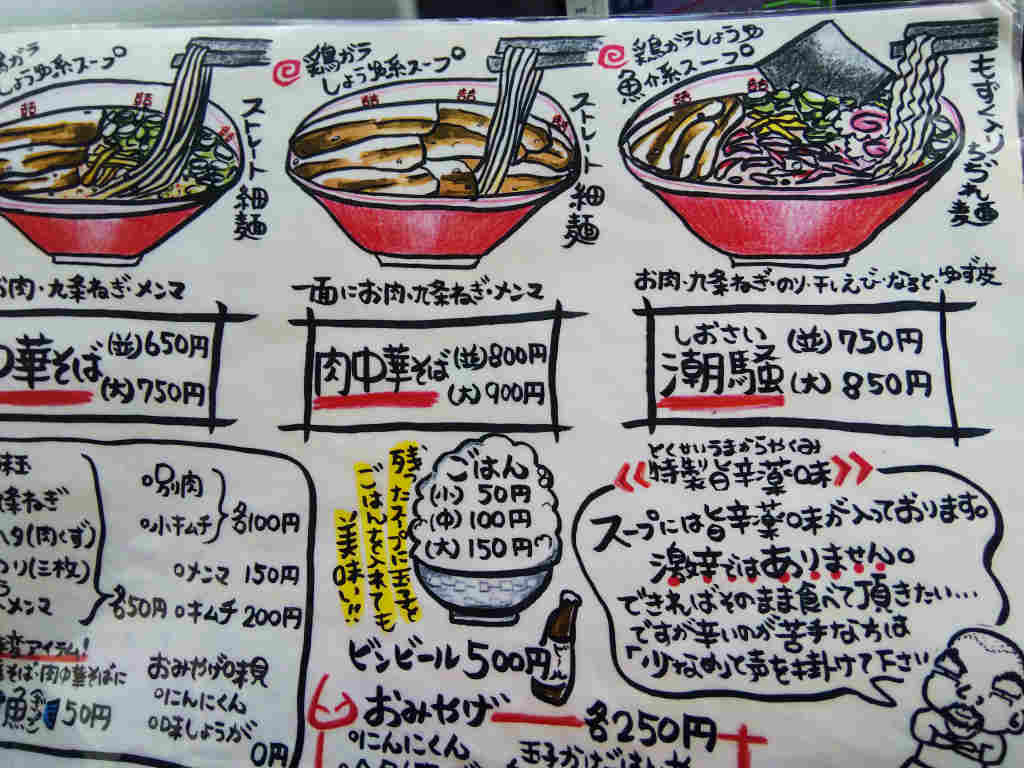 鶏ガラ
しょうゆ系スープ
ストレート細麺
お肉・九条ねぎ・メンマ
中華そば (並)650円
(大)750円
鶏ガラ
しょうゆ系スープ
ストレート細麺
一面にお肉・九条ねぎ・メンマ
肉中華そば (並)800円
(大)900円
鶏ガラしょうゆ
魚介系スープ
もずく入りちぢれ麺
お肉・九条ねぎ・のり・干しえび・なると・ゆず皮
しおさい
潮騒
(並)750円
(大)850円
味玉
九条ねぎ
ヘタ(肉くず)
のり(三枚)
メンマ
各50円
別肉
小キムチ
各100円
メンマ 150円
キムチ 200円
変アイテム!
そば・肉中華そばに
魚 50円
おみやげ味見
にんにくん
味しょうが
0円
残ったスープに玉子を
ごはんを入れても
美味い!!
ごはん
(小) 50円
(中) 100円
(大) 150円
ビンビール 500円
ビール
おみやげ 各250円
にんにくん
とくせいうまからやくみ
特製旨辛薬味
スープには旨辛薬味が入っております。
激辛ではありません。
できればそのまま食べて頂きたい…
ですが辛いのが苦手な方は
「少なめ」と声を掛けて下さい